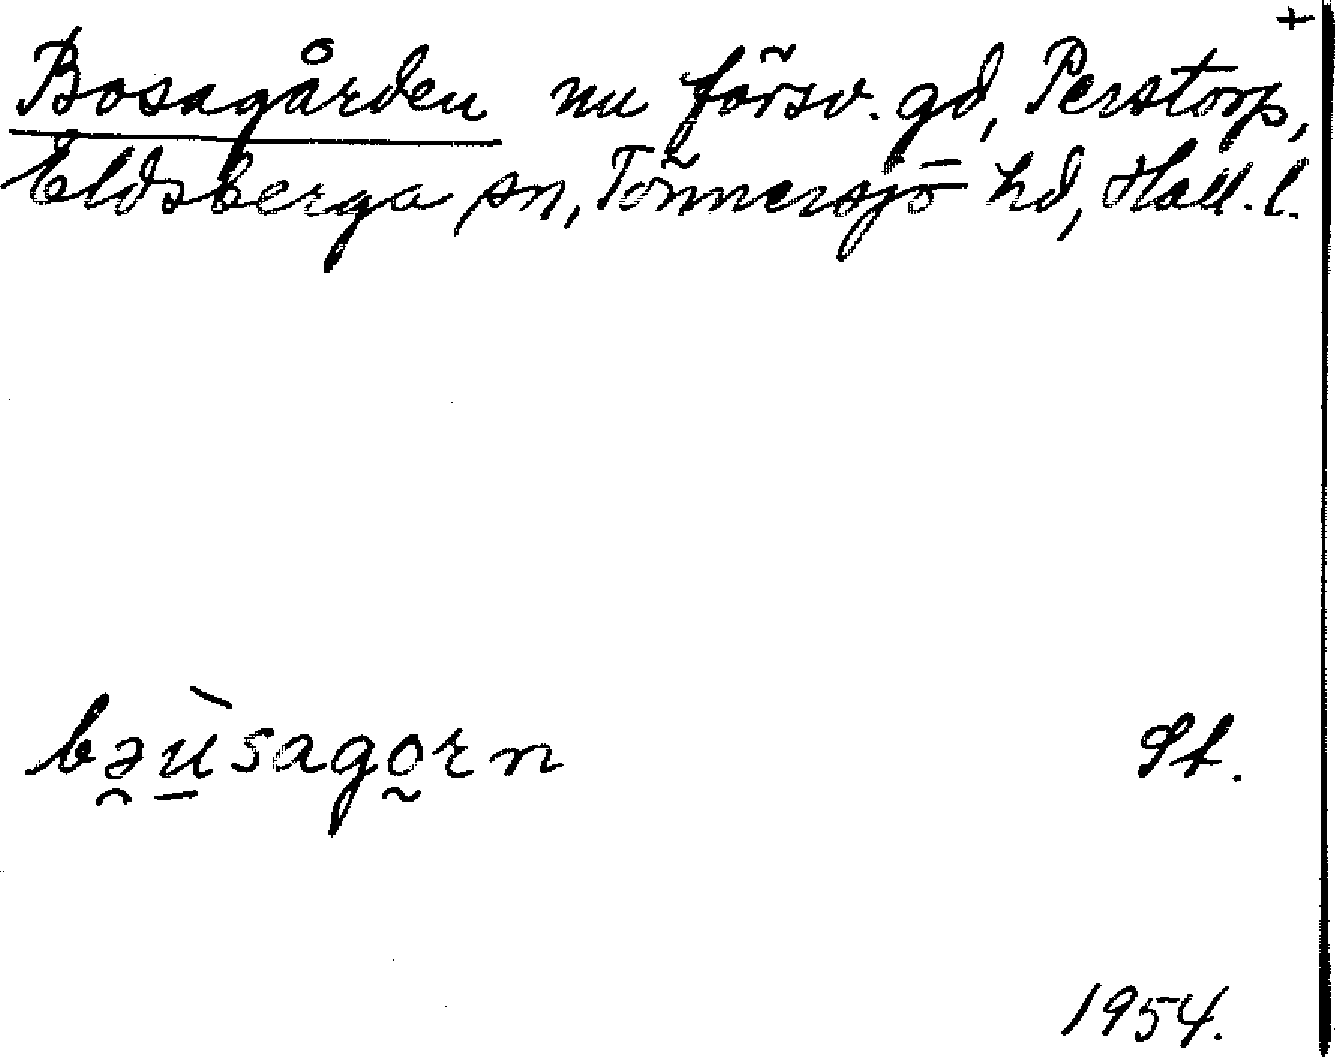 +
Bosagården nu försv. gd, Perstorp,
Eldsberga sn, Tönnersjö hd, Hall. l.
bə̯ù̠sago̰rn St.
1954.